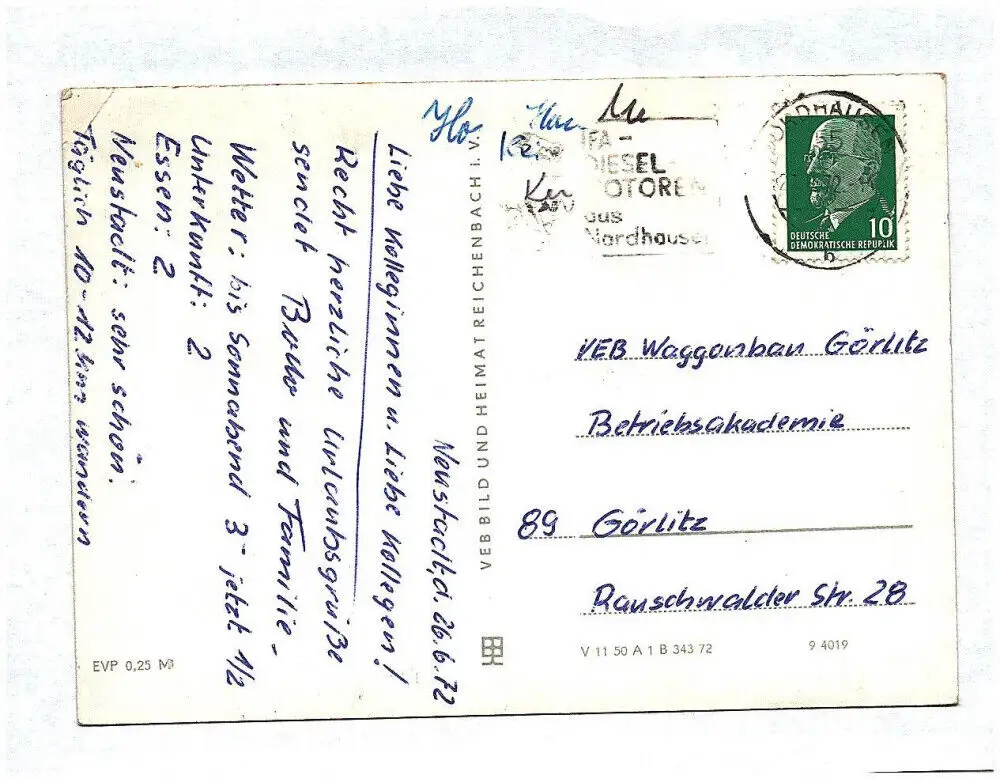 Neustadt, d. 26.6.72
Liebe Kolleginnen u. Liebe Kollegen!
Recht herzliche Urlaubsgrüße
sendet und Familie -
Wetter: bis Sonnabend 3 - jetzt 1/2
Unterkunft: 2
Essen: 2
Neustadt: sehr schön.
Täglich 10-12 km wandern
EVP 0,25 M
VEB BILD UND HEIMAT REICHENBACH I. V.
IFA -
DIESEL-
MOTOREN
aus
Nordhausen
NORDHAUSEN
10
DEUTSCHE
DEMOKRATISCHE REPUBLIK
VEB Waggonbau Görlitz
Betriebsakademie
89 Görlitz
Rauschwalder Str. 28
V 11 50 A 1 B 343 72
9 4019